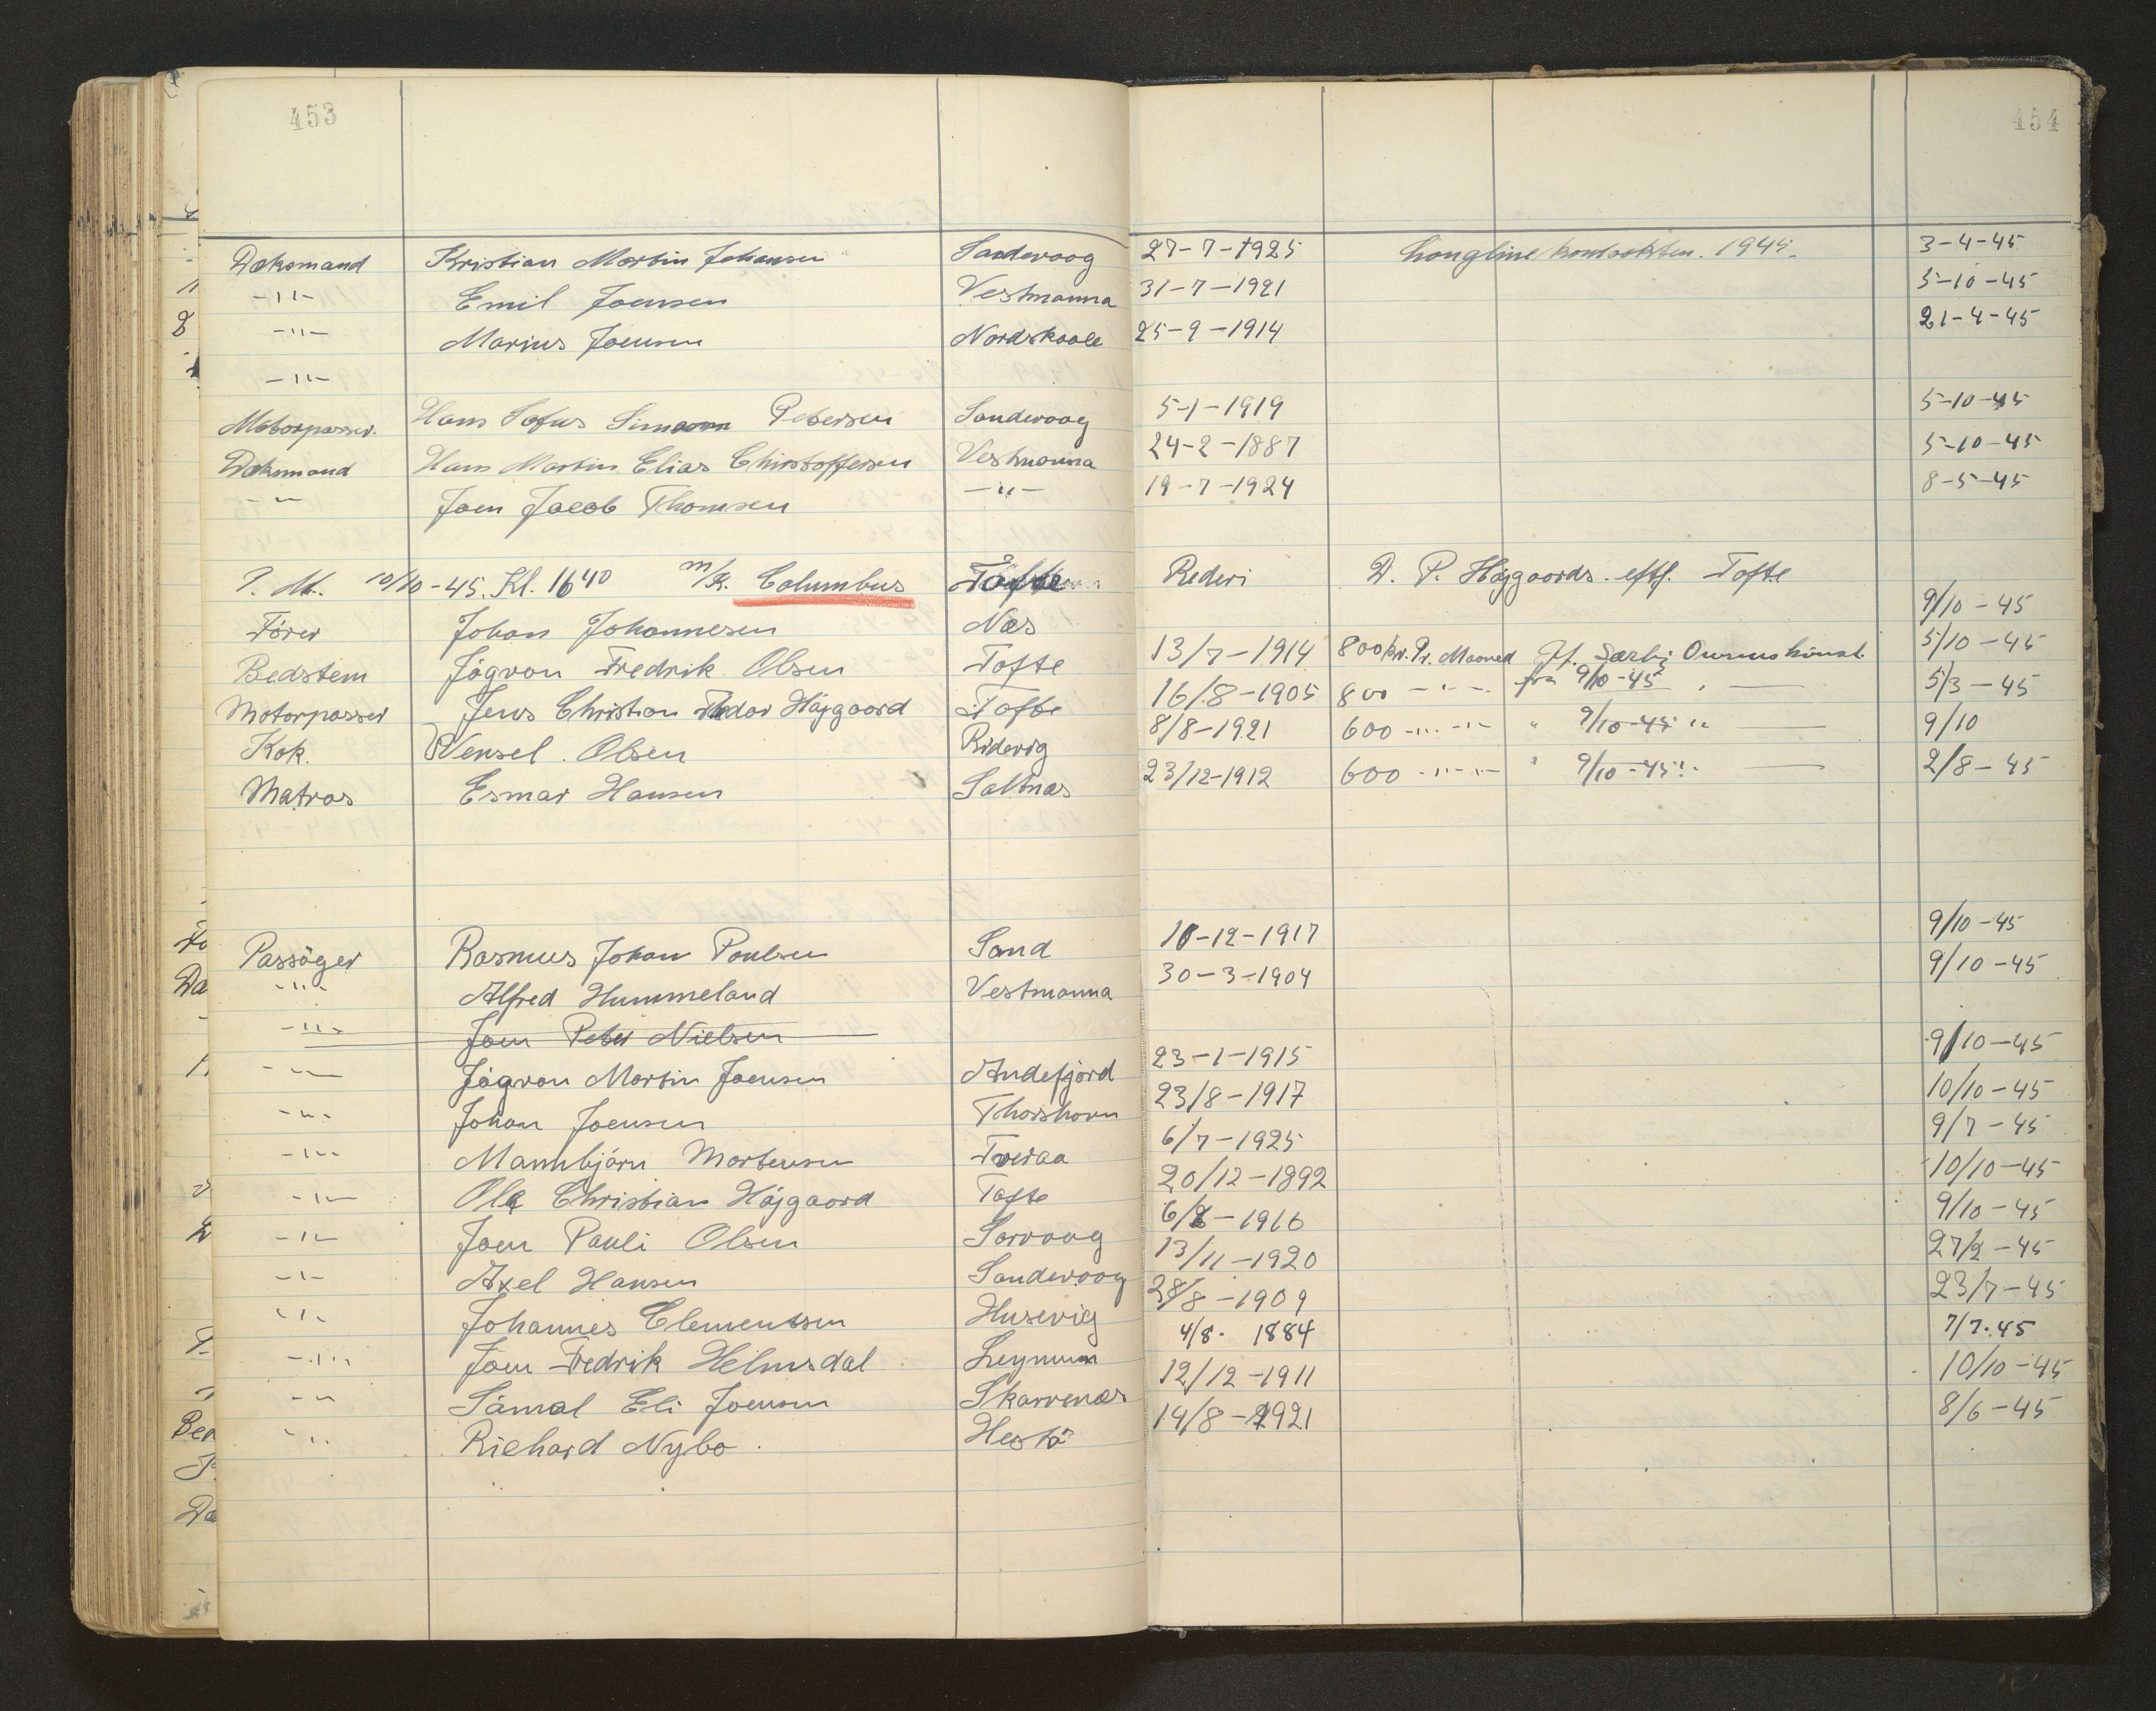 453
454
Dæksmand Kristian Martin Johansen Sandevaag 27-7-1925 Longline kontrakten. 1945. 3-4-45
-"- Emil Joensen Vestmanna 31-7-1921 5-10-45
-"- Marius Joensen Nordskaale 25-9-1914 21-4-45
-"-
Motorpasser. Hans Sofus Simonn Petersen Sandevaag 5-1-1919 5-10-45
Dæksmand Hans Martin Elias Christoffersen Vestmanna 24-2-1887 5-10-45
-"- Joen Jacob Thomsen -"- 19-7-1924 8-5-45
P. M. 10/10-45. Kl. 1640 m/k. Columbus Tofte Rederi D. P. Højgaards. eftf. Tofte
Fører Johan Johannesen Næs 9/10-45
Bedstem Jógvan Fredrik Olsen Tofte 13/7-1914 800 kr. Pr. Maaned Jf. Særlig Overenskomst. 5/10-45
Motorpasser Jens Christian Thedor Højgaard Tofte 16/8-1905 800 -"- fra 9/10-45 5/3-45
Kok. Wensel Olsen Ridevig 8/8-1921 600 -"- " 9/10-45 " 9/10
Matros Esmar Hansen Saltnæs 23/12-1912 600 -"- " 9/10-45 " 2/8-45
Passäger Rasmus Johan Poulsen Sand 10-12-1917 9/10-45
-"- Alfred Hummeland Vestmanna 30-3-1904 9/10-45
-"- Joen Peter Nielsen
-"- Jógvan Martin Joensen Andefjord 23-1-1915 9/10-45
-"- Johan Joensen Thorshavn 23/8-1917 10/10-45
-"- Mannbjørn Mortensen Tveraa 6/7-1925 9/7-45
-"- Ole Christian Højgaard Tofte 20/12-1892 10/10-45
-"- Joen Pauli Olsen Sorvaag 6/8-1916 9/10-45
-"- Axel Hansen Sandevaag 13/11-1920 27/2-45
-"- Johannes Clementsen Husevig 28/8-1909 23/7-45
-"- Joen Fredrik Helmsdal Leynum 4/8. 1884 7/7.45
-"- Sámal Eli Joensen Skarvenæs 12/12-1911 10/10-45
-"- Richard Nybo. Hestö 14/8-1921 8/6-45